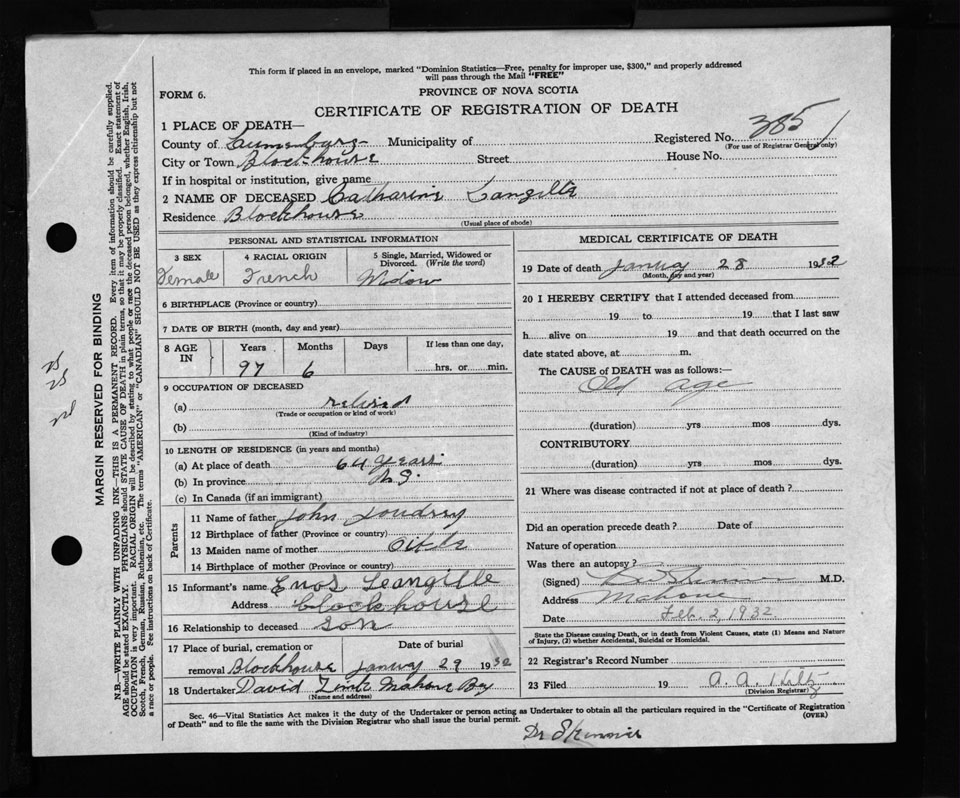 This form if placed in an envelope, marked "Dominion Statistics—Free, penalty for improper use, $300," and properly addressed
will pass through the Mail "FREE"
FORM 6.
PROVINCE OF NOVA SCOTIA
CERTIFICATE OF REGISTRATION OF DEATH
1 PLACE OF DEATH—
County of Lunenburg Municipality of
Registered No. 385
(For use of Registrar General only)
City or Town Blockhouse Street House No.
If in hospital or institution, give name
2 NAME OF DECEASED Catharine Langille
Residence Blockhouse
(Usual place of abode)
PERSONAL AND STATISTICAL INFORMATION
3 SEX
Female
4 RACIAL ORIGIN
French
5 Single, Married, Widowed or
Divorced. (Write the word)
Widow
6 BIRTHPLACE (Province or country)
7 DATE OF BIRTH (month, day and year)
8 AGE
IN
Years
97
Months
6
Days
If less than one day,
hrs. or min.
9 OCCUPATION OF DECEASED
(a) retired
(Trade or occupation or kind of work)
(b)
(Kind of industry)
10 LENGTH OF RESIDENCE (in years and months)
(a) At place of death 64 years
(b) In province N.S.
(c) In Canada (if an immigrant)
Parents
11 Name of father John Joudrey
12 Birthplace of father (Province or country)
13 Maiden name of mother
14 Birthplace of mother (Province or country)
15 Informant's name Enos Leangille
Address blockhouse
16 Relationship to deceased son
17 Place of burial, cremation or
removal Blockhouse
Date of burial
Januy 29 1932
18 Undertaker David Zink Mahone Bay
(Name and address)
MEDICAL CERTIFICATE OF DEATH
19 Date of death Januy 28 1932
(Month, day and year)
20 I HEREBY CERTIFY that I attended deceased from
19 to 19 that I last saw
h alive on 19 and that death occurred on the
date stated above, at m.
The CAUSE of DEATH was as follows:—
Old age
(duration) yrs mos dys.
CONTRIBUTORY
(duration) yrs mos dys.
21 Where was disease contracted if not at place of death?
Did an operation precede death? Date of
Nature of operation
Was there an autopsy?
(Signed) M.D.
Address Mahone
Date Feb. 2, 1932
State the Disease causing Death, or in death from Violent Causes, state (1) Means and Nature
of Injury, (2) whether Accidental, Suicidal or Homicidal.
22 Registrar's Record Number
23 Filed 19 A. A. Hiltz
(Division Registrar)
Sec. 46—Vital Statistics Act makes it the duty of the Undertaker or person acting as Undertaker to obtain all the particulars required in the "Certificate of Registration
of Death" and to file the same with the Division Registrar who shall issue the burial permit.
(OVER)
MARGIN RESERVED FOR BINDING
N.B.—WRITE PLAINLY WITH UNFADING INK—THIS IS A PERMANENT RECORD. Every item of information should be carefully supplied.
AGE should be stated EXACTLY. PHYSICIANS should STATE CAUSE OF DEATH in plain terms, so that it may be properly classified. Exact statement of
OCCUPATION is very important. RACIAL ORIGIN will be described by stating to what people or race the deceased person belonged, whether English, Irish,
Scotch, French, German, Russian, Ruthenian, etc. The terms "AMERICAN" or "CANADIAN" SHOULD NOT BE USED as they express citizenship but not
a race or people. See instructions on back of Certificate.